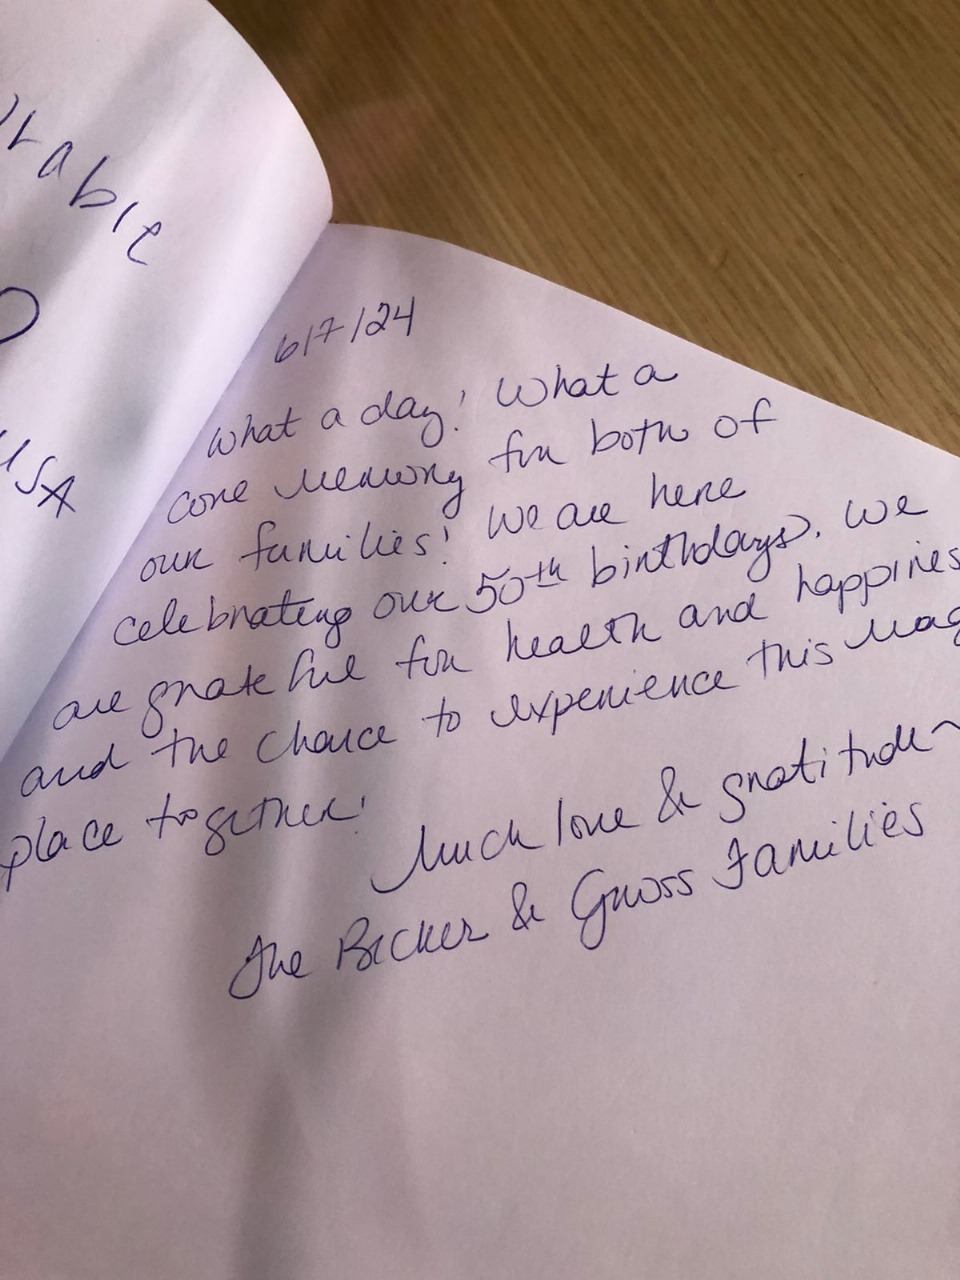 6/7/24
What a day! What a
core memory for both of
our families! We are here
celebrating our 50th birthdays. We
are grateful for health and happines
and the chance to experience this mag
place together!
Much love & gratitude~
The Becker & Gross Families
rable
USA